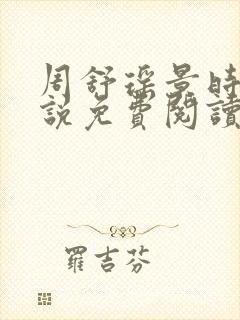 周舒琛景时
說免費閱讀
羅吉芬